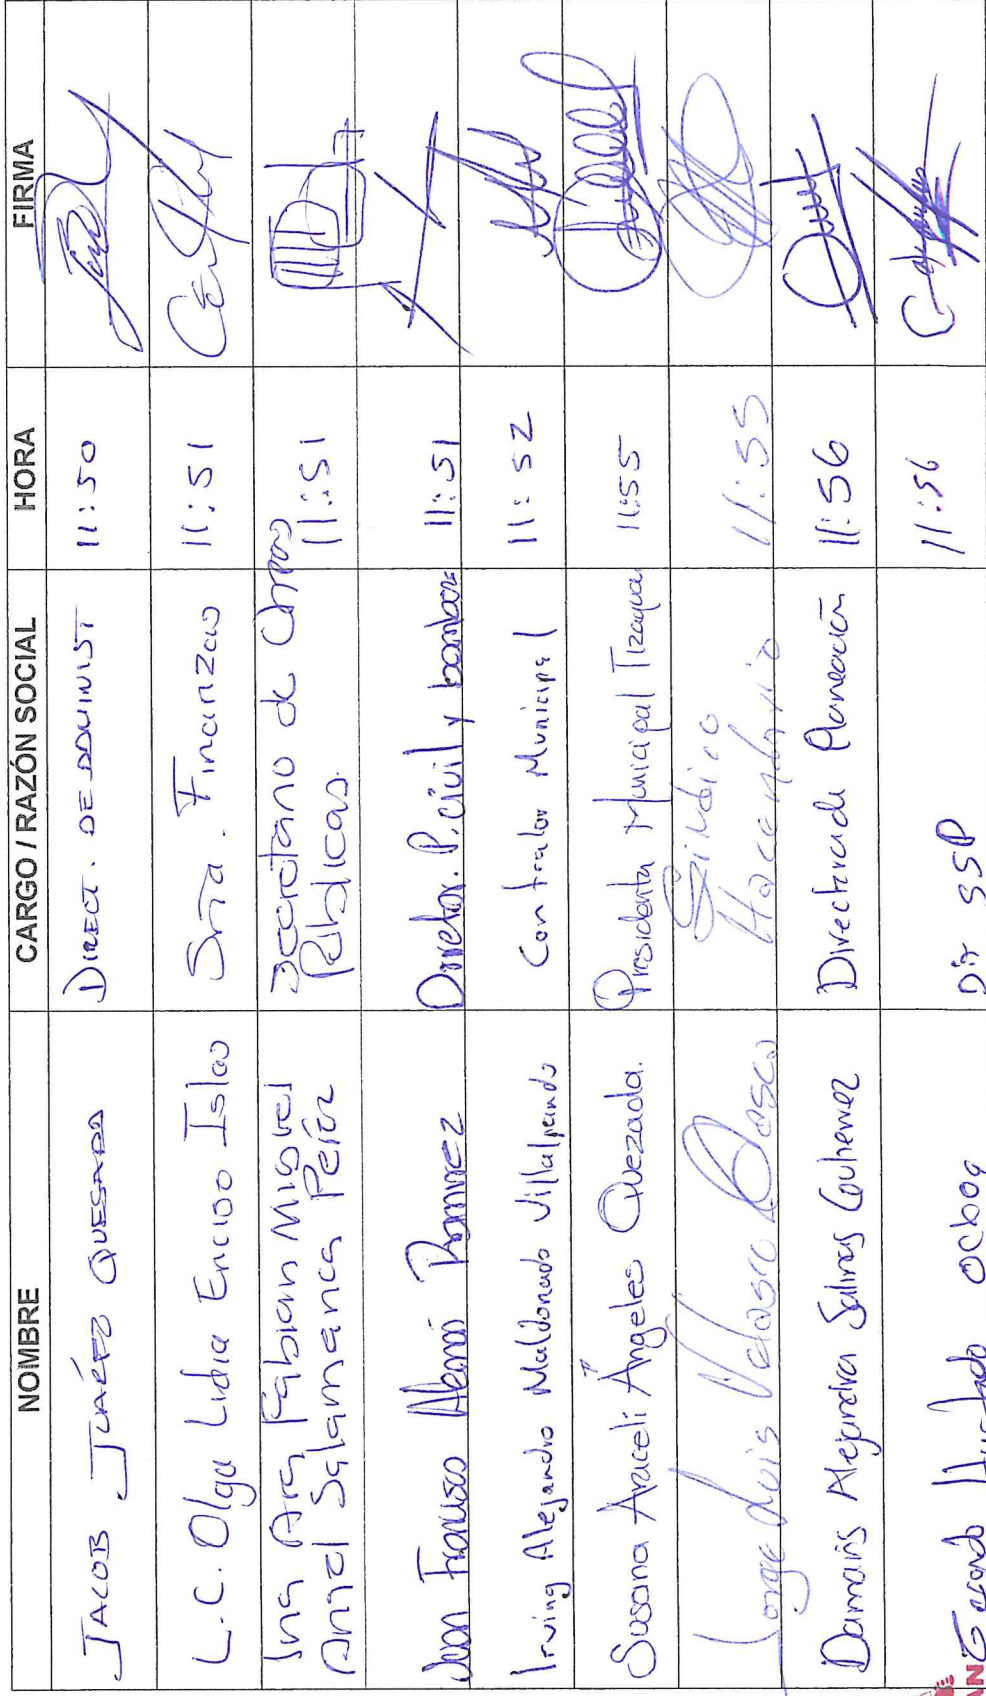 NOMBRE CARGO / RAZÓN SOCIAL HORA FIRMA
JACOB JUÁREZ QUESADA DIRECT. DE ADMINIST 11:50
L.C. Olga Lidia Enciso Islas Sria. Finanzas 11:51
Ing Arq Fabian Misael Secretario de Obras
Angel Salamanca Pérez Publicas. 11:51
Juan Francisco Ramirez Director P. civil y bomberos 11:51
Irving Alejandro Maldonado Villalpando Contralor Municipal 11:52
Susana Araceli Ángeles Quezada. Presidenta Municipal Tizayuca 11:55
Jorge Luis Velasco Síndico
Hacendario 11:55
Damaris Alejandra Salinas Gutierrez Directora de Planeación 11:56
Gerardo Hurtado Ochoa Dir SSP 11:56